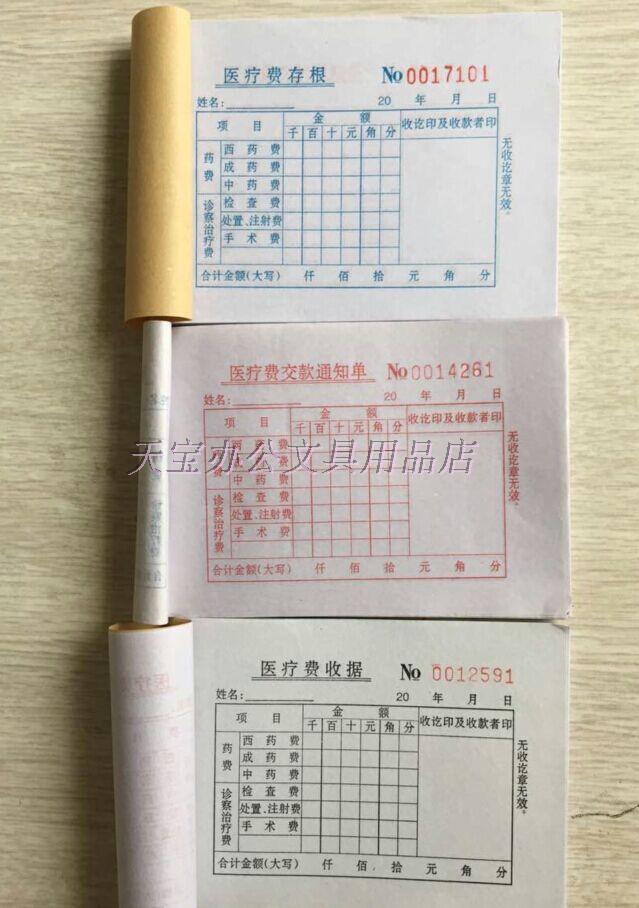 医疗费存根 No 0017101
姓名: 20 年 月 日
项 目 金 额 收讫印及收款者印
千 百 十 元 角 分
药费 西 药 费
成 药 费
中 药 费
诊察治疗费 检 查 费
处置、注射费
手 术 费
合计金额(大写) 仟 佰 拾 元 角 分
无收讫章无效。
医疗费交款通知单 No 0014261
姓名: 20 年 月 日
项 目 金 额 收讫印及收款者印
千 百 十 元 角 分
西 药 费
费
中 药 费
诊察治疗费 检 查 费
处置、注射费
手 术 费
合计金额(大写) 仟 佰 拾 元 角 分
无收讫章无效。
天宝办公文具用品店
医疗费收据 No 0012591
姓名: 20 年 月 日
项 目 金 额 收讫印及收款者印
千 百 十 元 角 分
药费 西 药 费
成 药 费
中 药 费
诊察治疗费 检 查 费
处置、注射费
手 术 费
合计金额(大写) 仟 佰 拾 元 角 分
无收讫章无效。